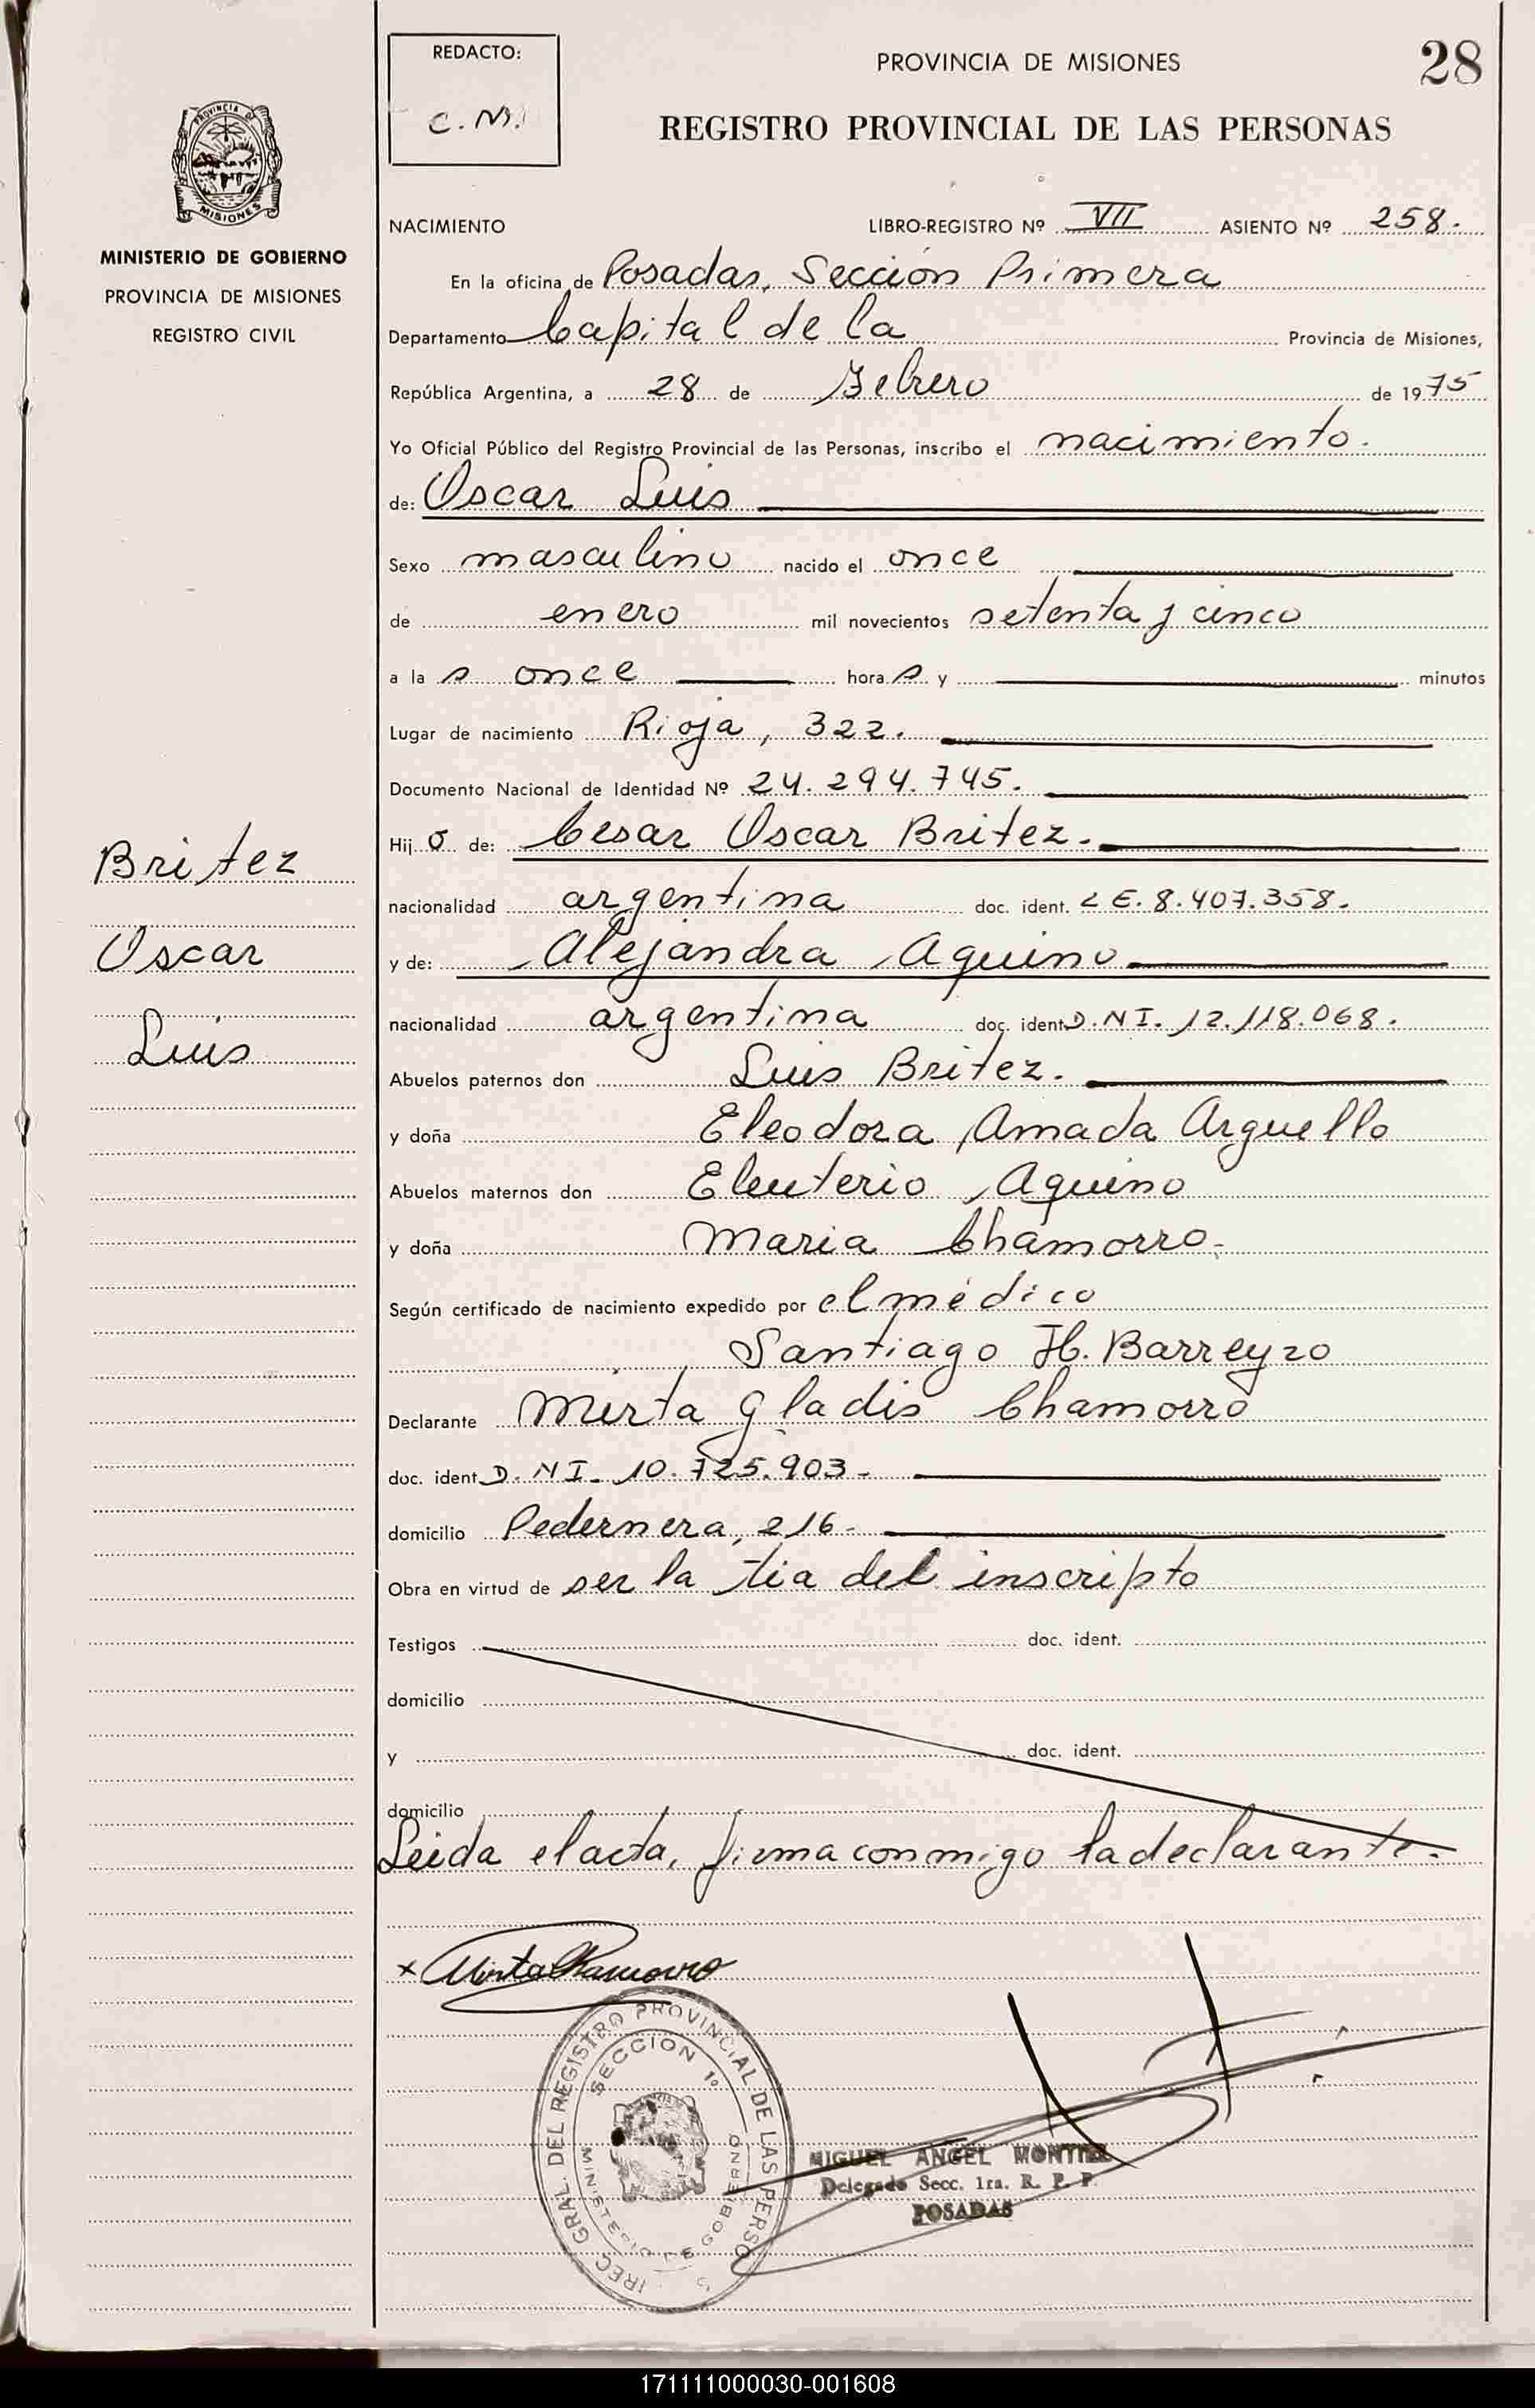 REDACTO:
C. M.
PROVINCIA DE MISIONES
28
REGISTRO PROVINCIAL DE LAS PERSONAS
PROVINCIA D
MISIONES
MINISTERIO DE GOBIERNO
PROVINCIA DE MISIONES
REGISTRO CIVIL
NACIMIENTO LIBRO-REGISTRO Nº VII ASIENTO Nº 258.
En la oficina de Posadas, Sección Primera
Departamento Capital de la Provincia de Misiones,
República Argentina, a 28 de Febrero de 1975
Yo Oficial Público del Registro Provincial de las Personas, inscribo el nacimiento.
de: Oscar Luis
Sexo masculino nacido el once
de enero mil novecientos setenta y cinco
a la s once hora s y minutos
Lugar de nacimiento Rioja, 322.
Documento Nacional de Identidad Nº 24.294.745.
Hij o de: Cesar Oscar Britez.
nacionalidad argentina doc. ident. L E. 8.407.358.
y de: Alejandra Aquino
nacionalidad argentina doc. ident. D.N I. 12.118.068.
Abuelos paternos don Luis Britez.
y doña Eleodora Amada Arguello
Abuelos maternos don Eleuterio Aquino
y doña Maria Chamorro.
Según certificado de nacimiento expedido por el médico
Santiago H. Barreyro
Declarante Mirta Gladis Chamorro
doc. ident. D. N I. 10.725.903.
domicilio Pedernera, 216.
Obra en virtud de ser la tia del inscripto
Testigos doc. ident.
domicilio
y doc. ident.
domicilio
Leida el acta, firma conmigo la declarante.
Britez
Oscar
Luis
x Mirta Chamorro
IREC. GRAL. DEL REGISTRO PROVINCIAL DE LAS PERSO
SECCION 1º
MINISTERIO DE GOBIERNO
MIGUEL ANGEL MONTIEL
Delegado Secc. 1ra. R. P. P.
POSADAS
171111000030-001608